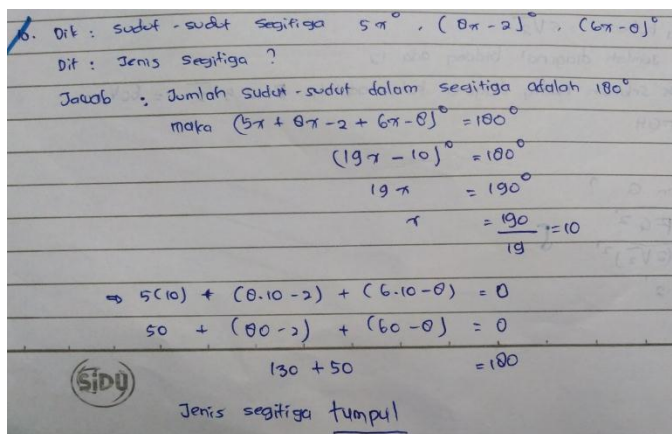 6. Dik : sudut-sudut segitiga 5x°, (8x-2)°, (6x-8)°
Dit : Jenis segitiga ?
Jawab : Jumlah sudut-sudut dalam segitiga adalah 180°
maka (5x + 8x - 2 + 6x - 8)° = 180°
(19x - 10)° = 180°
19x = 190°
x = 190/19 = 10
⇒ 5(10) + (8.10 - 2) + (6.10 - 8) = 0
50 + (80 - 2) + (60 - 8) = 0
130 + 50 = 180
SiDU
Jenis segitiga tumpul